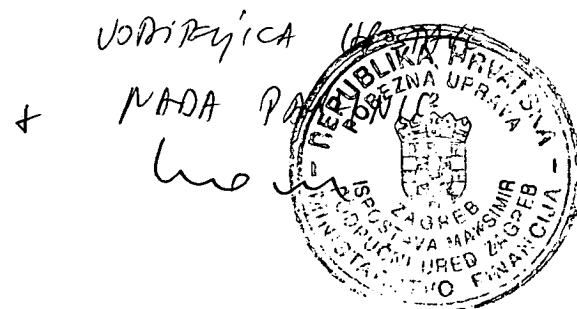 VODITELJICA
NADA
REPUBLIKA HRVATSKA
POREZNA UPRAVA
ZAGREB
ISPOSTAVA MAKSIMIR
PODRUČNI URED ZAGREB
MINISTARSTVO FINANCIJA